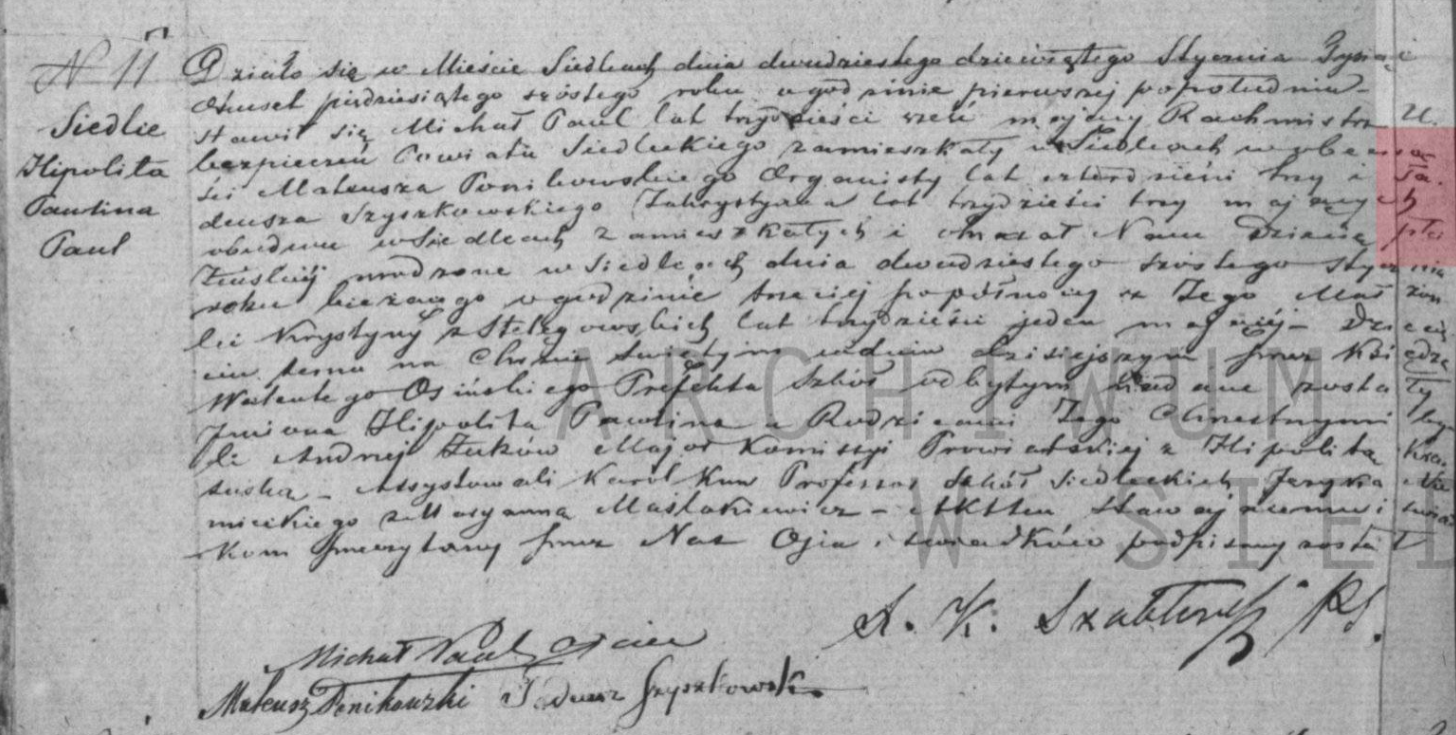 N 11
Siedlce
Hipolita
Paulina
Paul
Działo się w Mieście Siedlcach dnia dwudziestego dziewiątego Stycznia Tysiąc
Ośmset pięćdziesiątego szóstego roku o godzinie pierwszej popołudniu
Stawił się Michał Paul lat trzydzieści mający Rachmistrz U.
bezpieczeń Powiatu Siedleckiego zamieszkały w Siedlcach w obecno
ści Mateusza Ponikowskiego Organisty lat czterdzieści trzy i Ta
deusza Szyszkowskiego Zakrystyana lat trzydzieści trzy mających
obudwu w Siedlcach zamieszkałych i okazał Nam Dziecię płci
żeńskiej urodzone w Siedlcach dnia dwudziestego szóstego Stycznia
roku bieżącego o godzinie trzeciej popółnocy z Jego Małżon
ki Krystyny z lat trzydzieści jeden mającej Dziecię
ciu temu na Chrzcie Świętym w dniu dzisiejszym przez Księdza
Walentego Osińskiego Prefekta Szkół odbytym nadane zostały
Imiona Hipolita Paulina a Rodzicami Jego Chrzestnymi by
li Andrzej Żuków Major Komissyi Prowiantskiej z Hipolitą
Assystowali Karol Professor Szkół Siedleckich Języka Nie
mieckiego z Maryanną Maślakiewicz Akt ten Stawającemu i świad
kom przeczytany przez Nas Ojca i świadków podpisany został
Michał Paul Ojciec
Mateusz Ponikowski Tadeusz Szyszkowski
ARCHIWUM
W SIED